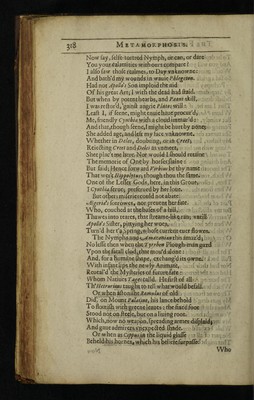 318 METAMORPHOSIS.
Now say, selfe-ruined Nymph, or can, or dare
You your calamities with our's compare?
I also saw those realmes, to Day unknowne:
And bath'd my wounds in Phlegeton.
Had not Apollo's Son imploid the aid
Of his great Art; I with the dead had staid.
But when by potent hearbs, and Pæons skill,
I was restor'd, against Pluto's will:
Least I, if seene, might envie have procur'd,
Me, friendly Cynthia with a cloud immur'd:
And that, though seene, I might be hurt by none;
She added age, and left my face unknowne.
Whether in Delos, doubting, or in Creet;
Rejecting Creet and Delos as unmeet,
She plac't me here. Nor would I should retaine
The memorie of One by horses slaine:
But said; Hence-forth be thy name
That wert Hippolytus; though thou the same.
One of the Lesse Gods, here, in this Grove,
I Cynthia serve, preserved by her love.
But others miseries could not abate
Ægeria's sorrowes, nor prevent her fate.
Who, couched at the foote of a hill,
Thawes into teares, that streame-like ran; untill
Apollo's Sister, pittying her woes,
Turn'd her t' a Spring, whose current ever flowes.
The Nymphs and Amazonian this amaz'd;
No lesse then when the Tyrrhen Plough-man gaz'd
Upon the fatall clod, that mov'd alone:
And, for a humane shape, exchang'd its owne.
With infant lips the newly Animate,
Reveal'd the Mysteries of future fate:
Whom Natives Tages call'd. He first of all
Th' Hetrurians taught to tell what would befall.
Or when astonisht Romulus of old
Did, on Mount Palatine, his lance behold
To flourish with greene leaves: the fixed foot
Stood not on steele, but on a living root.
Which, now no weapon, spreading armes displaid,
And gave admirers unexpected shade.
Or when as Cippus in the liquid glasse
Beheld his hornes, which his beliefe surpasse:
Who